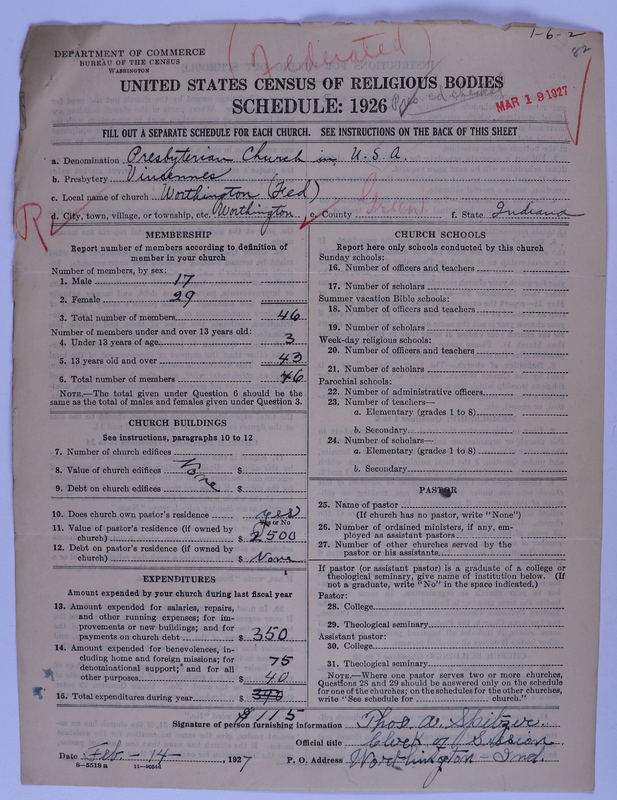 1-6-2
82
(Federated)
DEPARTMENT OF COMMERCE
BUREAU OF THE CENSUS
WASHINGTON
UNITED STATES CENSUS OF RELIGIOUS BODIES
SCHEDULE: 1926
MAR 19 1927
FILL OUT A SEPARATE SCHEDULE FOR EACH CHURCH. SEE INSTRUCTIONS ON THE BACK OF THIS SHEET
a. Denomination Presbyterian Church in U.S.A.
b. Presbytery Vinsennes
c. Local name of church Worthington (Fed)
d. City, town, village, or township, etc. Worthington e. County Green f. State Indiana
R
MEMBERSHIP
Report number of members according to definition of
member in your church
Number of members, by sex:
1. Male 17
2. Female 29
3. Total number of members 46
Number of members under and over 13 years old:
4. Under 13 years of age 3
5. 13 years old and over 43
6. Total number of members 46
NOTE.—The total given under Question 6 should be
same as the total of males and females given under Question 3.
CHURCH BUILDINGS
See instructions, paragraphs 10 to 12
7. Number of church edifices
8. Value of church edifices None $
9. Debt on church edifices $
10. Does church own pastor's residence yes
Yes or No
11. Value of pastor's residence (if owned by
church) $ 2500
12. Debt on pastor's residence (if owned by
church) $ None
EXPENDITURES
Amount expended by your church during last fiscal year
13. Amount expended for salaries, repairs,
and other running expenses; for im-
provements or new buildings; and for
payments on church debt $ 350
14. Amount expended for benevolences, in-
cluding home and foreign missions; for 75
denominational support; and for all
other purposes $ 40
15. Total expenditures during year $ 390
$115
CHURCH SCHOOLS
Report here only schools conducted by this church
Sunday schools:
16. Number of officers and teachers
17. Number of scholars
Summer vacation Bible schools:
18. Number of officers and teachers
19. Number of scholars
Week-day religious schools:
20. Number of officers and teachers
21. Number of scholars
Parochial schools:
22. Number of administrative officers
23. Number of teachers—
a. Elementary (grades 1 to 8)
b. Secondary
24. Number of scholars—
a. Elementary (grades 1 to 8)
b. Secondary
PASTOR
25. Name of pastor
(If church has no pastor, write "None")
26. Number of ordained ministers, if any, em-
ployed as assistant pastors
27. Number of other churches served by the
pastor or his assistants
If pastor (or assistant pastor) is a graduate of a college or
theological seminary, give name of institution below. (If
not a graduate, write "No" in the space indicated.)
Pastor:
28. College
29. Theological seminary
Assistant pastor:
30. College
31. Theological seminary
NOTE.—Where one pastor serves two or more churches,
Questions 28 and 29 should be answered only on the schedule
for one of the churches; on the schedules for the other churches,
write "See schedule for church."
Signature of person furnishing information Thos. A.
Official title Clerk of Session
Date Feb. - 14 - , 1927 P. O. Address Worthington - Ind.
8-5518 a